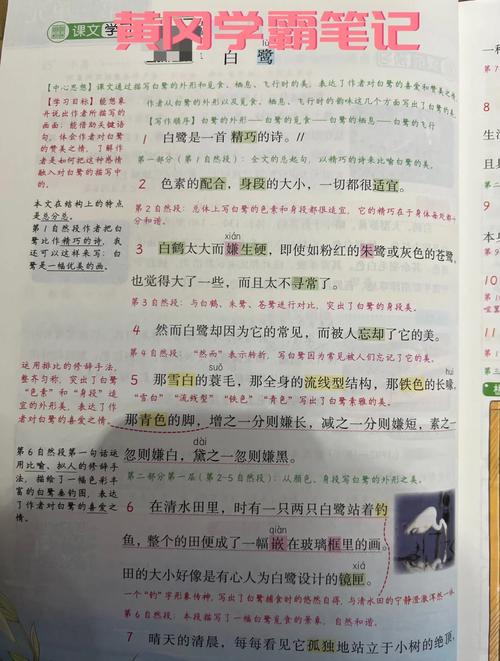 课文学
黄冈学霸笔记
lù
1 白鹭
【中心思想】课文通过描写白鹭的外形和觅食、栖息、飞行时的美，表达了作者对白鹭的喜爱和赞美之情。
【学习目标】能想象并说出作者所描写的画面；能借助关键语句，体会作者对白鹭的赞美之情，了解作者是如何把这种感情融入对白鹭的描写中的。
作者从白鹭的外形以及觅食、栖息、飞行时的韵味这几个方面写出了白鹭
【写作顺序】白鹭的外形——白鹭的觅食——白鹭的栖息——白鹭的飞行
1 白鹭是一首精巧的诗。//
第一部分（第1自然段）：全文的总起句，以精巧的诗来比喻白鹭的美。
2 色素的配合，身段的大小，一切都很适宜。
第2自然段：总体上写白鹭的色素和身段都很适宜，它的精巧在于身体每处都
分和谐。
本文在结构上的特点是总分总。
第1自然段作者把白鹭比作精巧的诗，我还可以这样来写：白鹭是一幅优美的画。
xián
3 白鹤太大而嫌生硬，即使如粉红的朱鹭或灰色的苍鹭，
也觉得大了一些，而且太不寻常了。
第3自然段：与白鹤、朱鹭、苍鹭进行对比，突出了白鹭的身段美。
4 然而白鹭却因为它的常见，而被人忘却了它的美。
第4自然段：“然而”表示转折，写白鹭因为常见被人们忘记了它的美。
suō
5 那雪白的蓑毛，那全身的流线型结构，那铁色的长喙，
“雪白”“流线型”“铁色”“青色”写出了白鹭素雅的美。
那青色的脚，增之一分则嫌长，减之一分则嫌短，素之一
dài
忽则嫌白，黛之一忽则嫌黑。
第二部分第一层（第2-5自然段）：从颜色、身段写白鹭的外形之美。
运用排比的修辞手法，整齐匀称，突出了白鹭“色素”和“身段”适宜的外形美，表达了作者对白鹭的喜爱之情。
第6自然段第一句话运用比喻、拟人的修辞手法，描绘了一幅色彩丰富的白鹭垂钓图，表达了作者对白鹭的喜爱之情。
6 在清水田里，时有一只两只白鹭站着钓
qiàn kuàng
鱼，整个的田便成了一幅嵌在玻璃框里的画。
xiá
田的大小好像是有心人为白鹭设计的镜匣。
一个“钓”字形象传神，写出了白鹭捕食时的悠然自得，与清水田的宁静澄澈浑然一体
第6自然段：本段描写了一幅白鹭觅食的景象，自然和谐。
7 晴天的清晨，每每看见它孤独地站立于小树的绝顶，